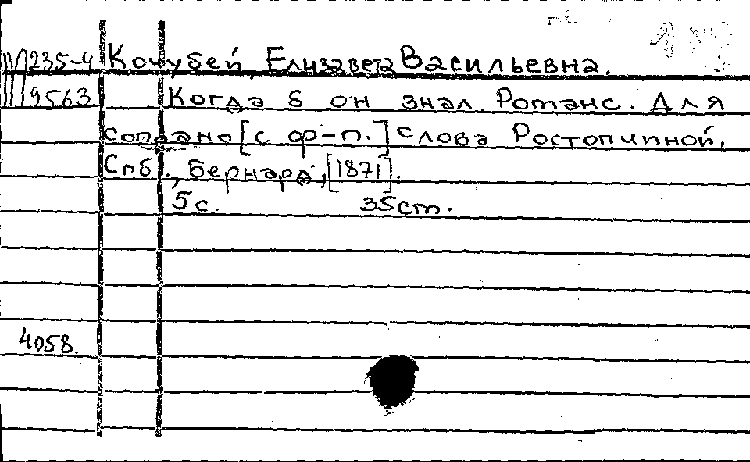 235-4 Кочубей, Елизавета Васильевна.
9563 Когда б он знал. Романс. Для
сопрано [с ф-п.] слова Ростопчиной.
Спб., Бернард, [1871].
5с. 35cm.
4058.